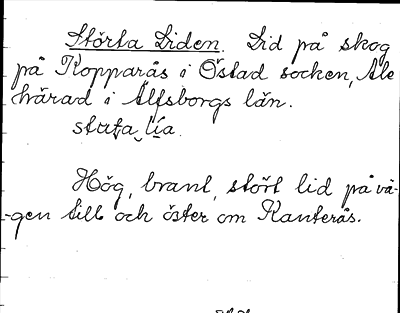 Störta Liden. Lid på skog
på Kopparås i Östad socken, Ale
härad i Älfsborgs län.
stųta lia
Hög, brant, stört lid på vä-
gen till och öster om Kanterås.